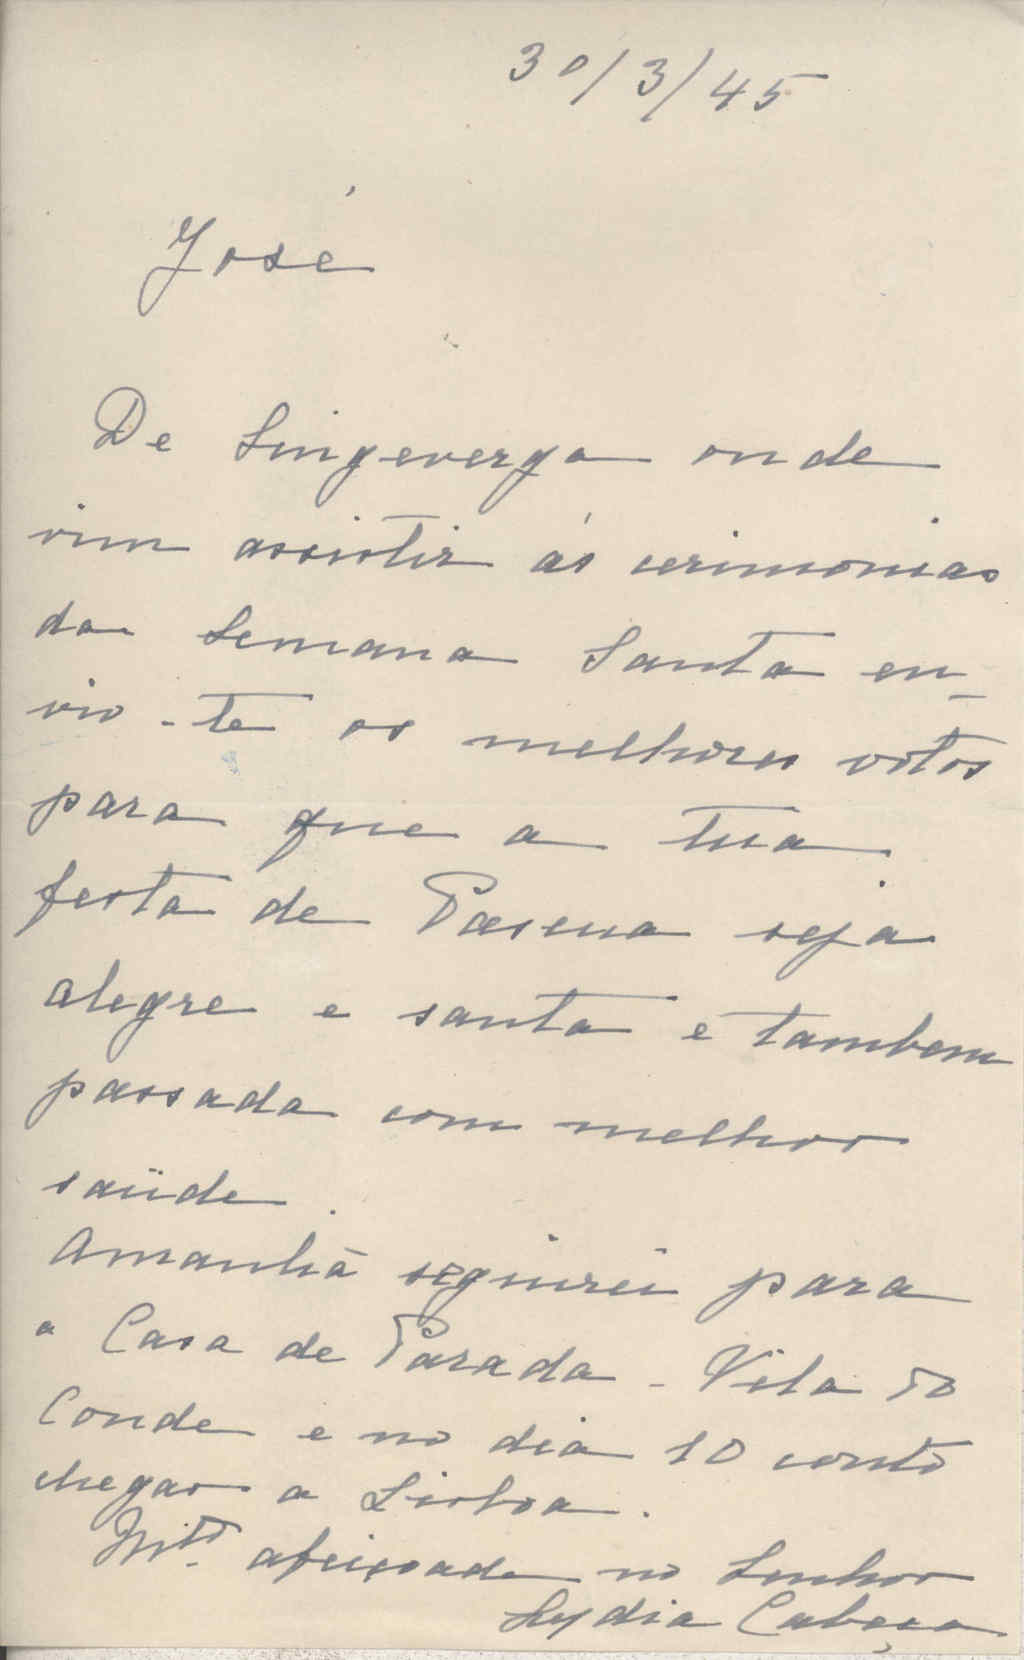 30/3/45
José
De Singeverga onde
vim assistir ás cerimonias
da Semana Santa en-
vio-te os melhores votos
para que a tua
festa de Pascua seja
alegre e santa e tambem
passada com melhor
saüde.
Amanhã seguirei para
a Casa de Parada - Vila do
Conde e no dia 10 conto
chegar a Lisboa.
Mtº. afeiçoada no Senhor
Lydia Cabeça